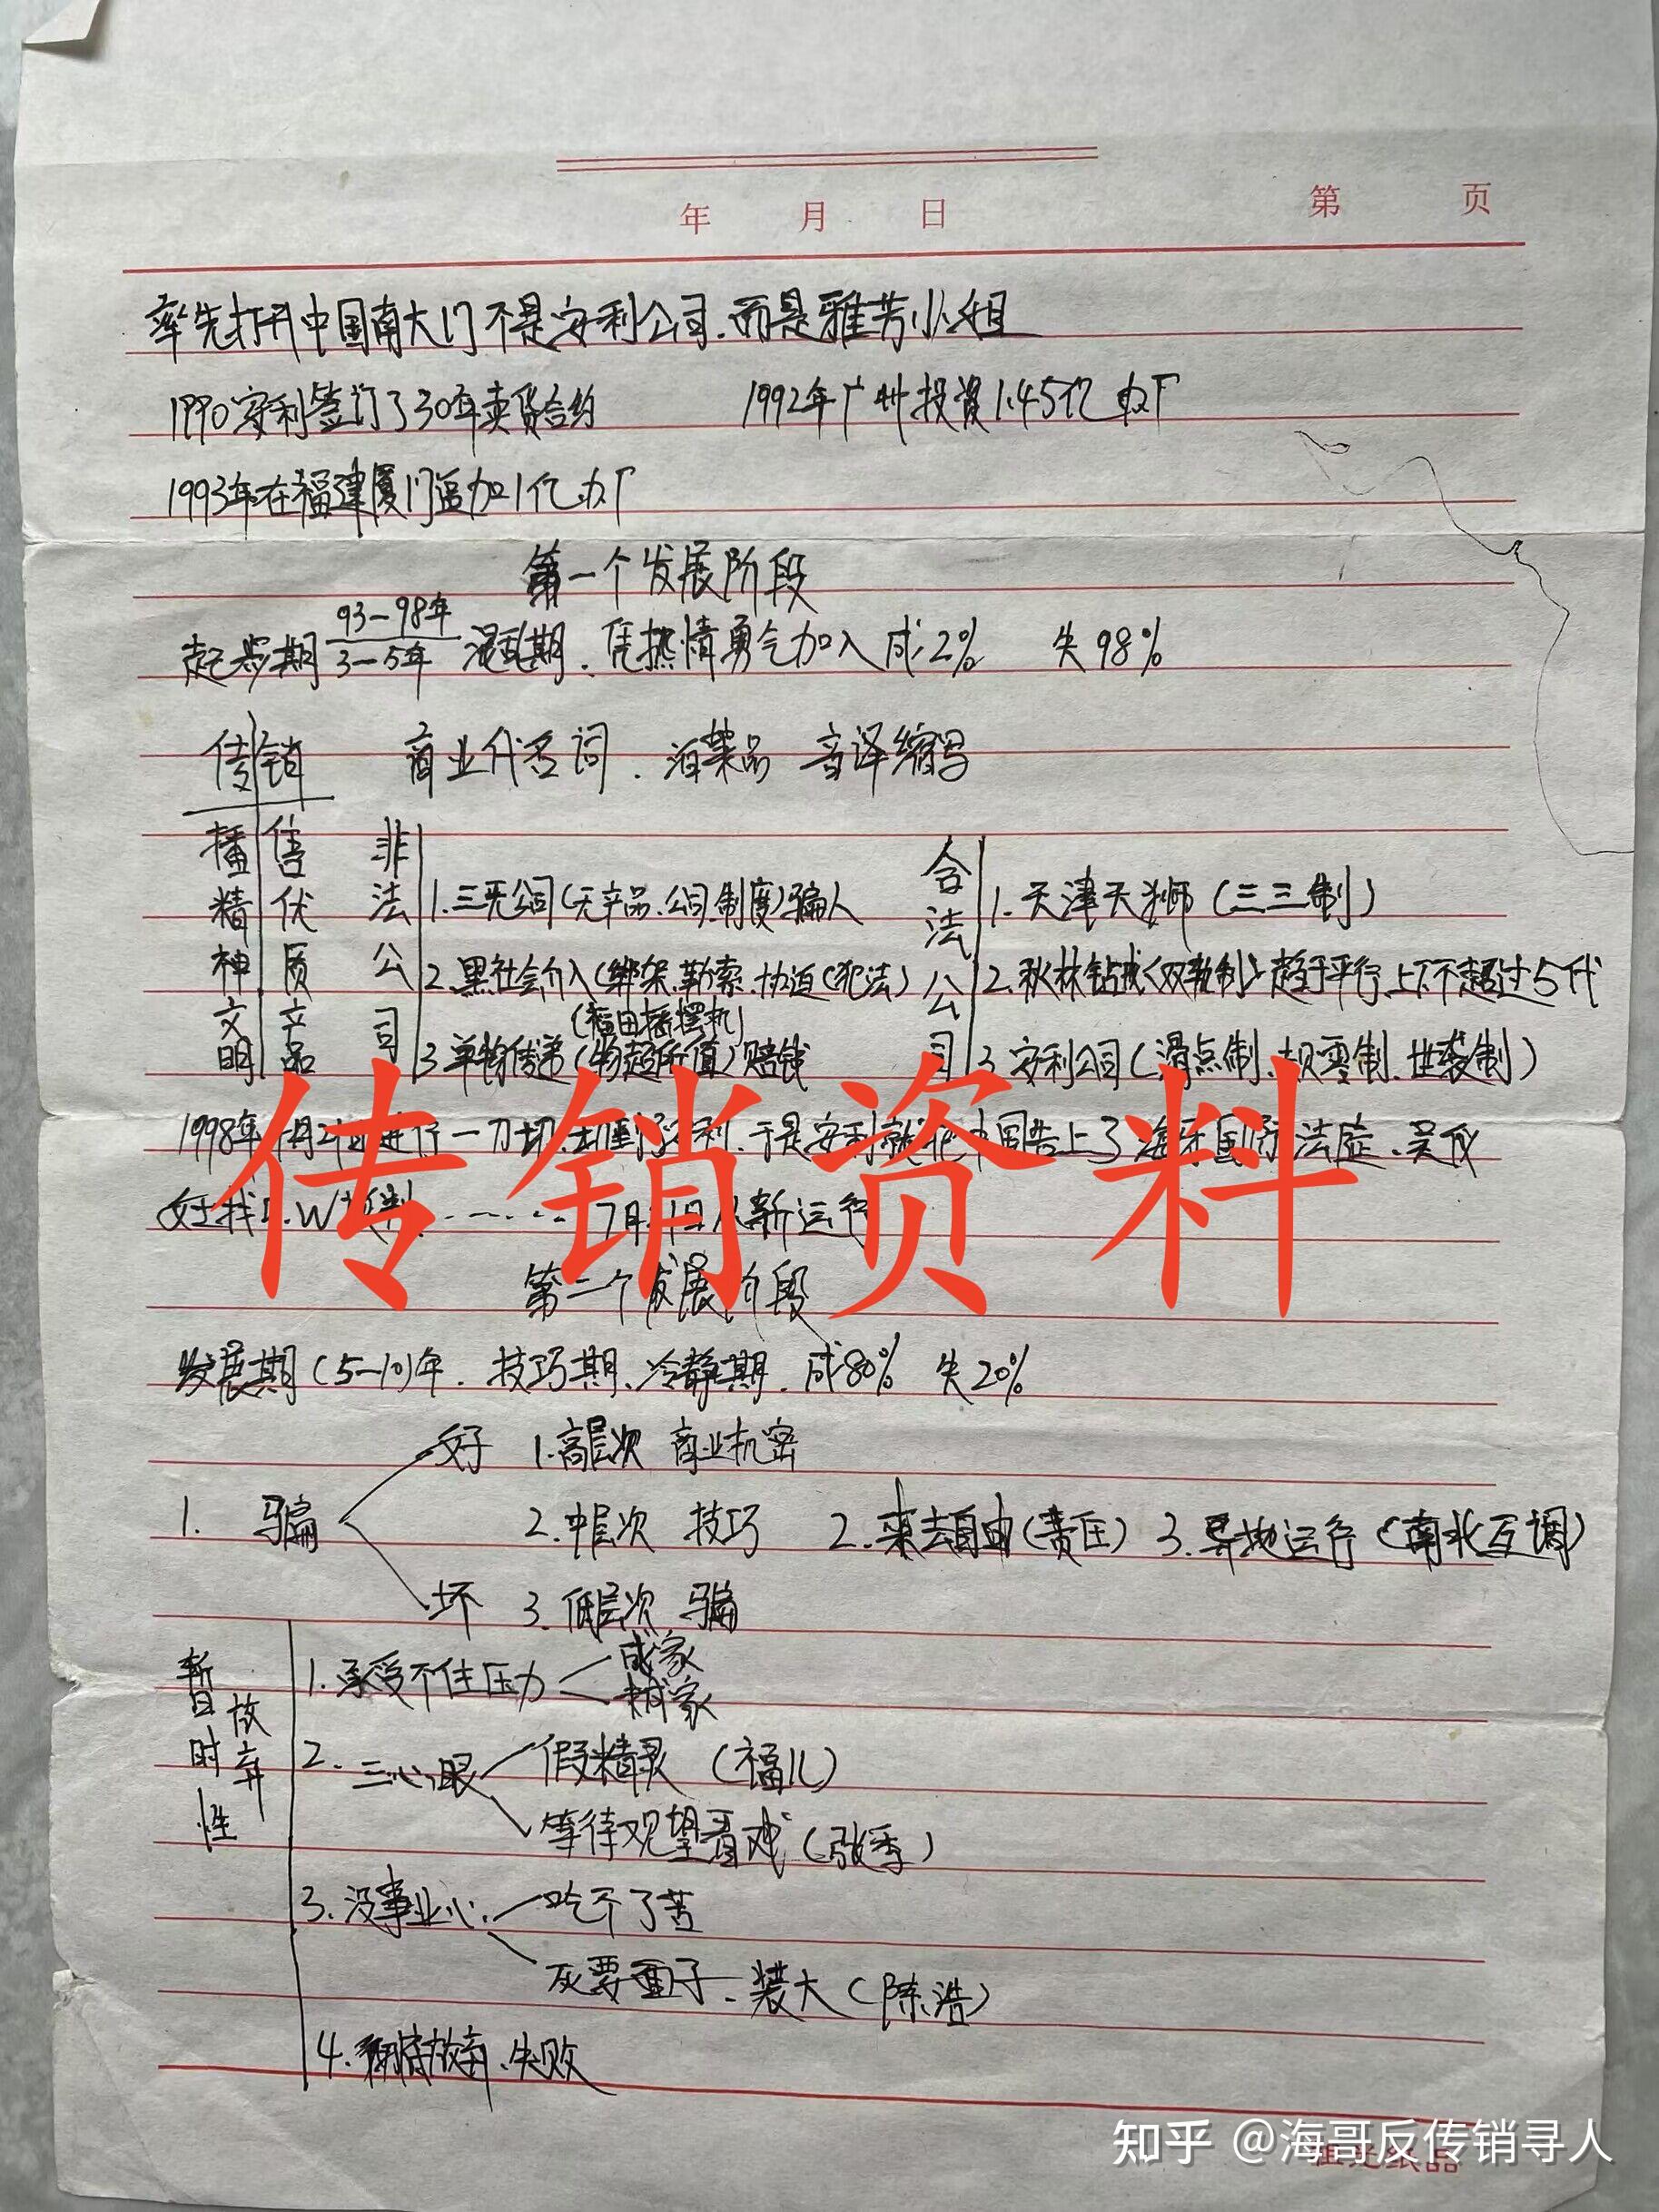 年 月 日 第 页
率先打开中国南大门不是安利公司.而是雅芳小姐
1990安利签订了30年卖货合约 1992年广州投资1.45亿办厂
1993年在福建厦门追加1亿办厂
第一个发展阶段
起步期 93-98年 3-5年 混乱期.凭热情勇气加入 成2% 失98%
传销 商业代名词.舶来品 音译缩写
播精神文明
售优质产品
非法公司
1.三无公司(无产品.公司.制度)骗人
2.黑社会介入(绑架.勒索.协迫(犯法)
(福田摇摆机)
3.单物传递(物超所值)赔钱
合法公司
1.天津天狮(三三制)
2.秋林钻城<双轨制>趋于平行上下不超过5代
3.安利公司(滑点制.归零制.世袭制)
1998年 月2 日进行一刀切.切到了安利.于是安利就把中国告上了海牙国际法庭.吴仪
女士找 W 7月 1日从新运行
传销资料
第二个发展阶段
发展期(5-10)年.技巧期、冷静期.成80% 失20%
好 1.高层次 商业机密
1. 骗 2.中层次 技巧 2.来去自由(责任) 3.异地运行(南北互调)
坏 3.低层次 骗
暂时性放弃
1.承受不住压力 成家 未成家
2.三心眼 假精灵(福儿)
等待观望看戏(张季)
3.没事业心.吃不了苦
灰要面子.装大(陈浩)
4. 放弃.失败
知乎 @海哥反传销寻人